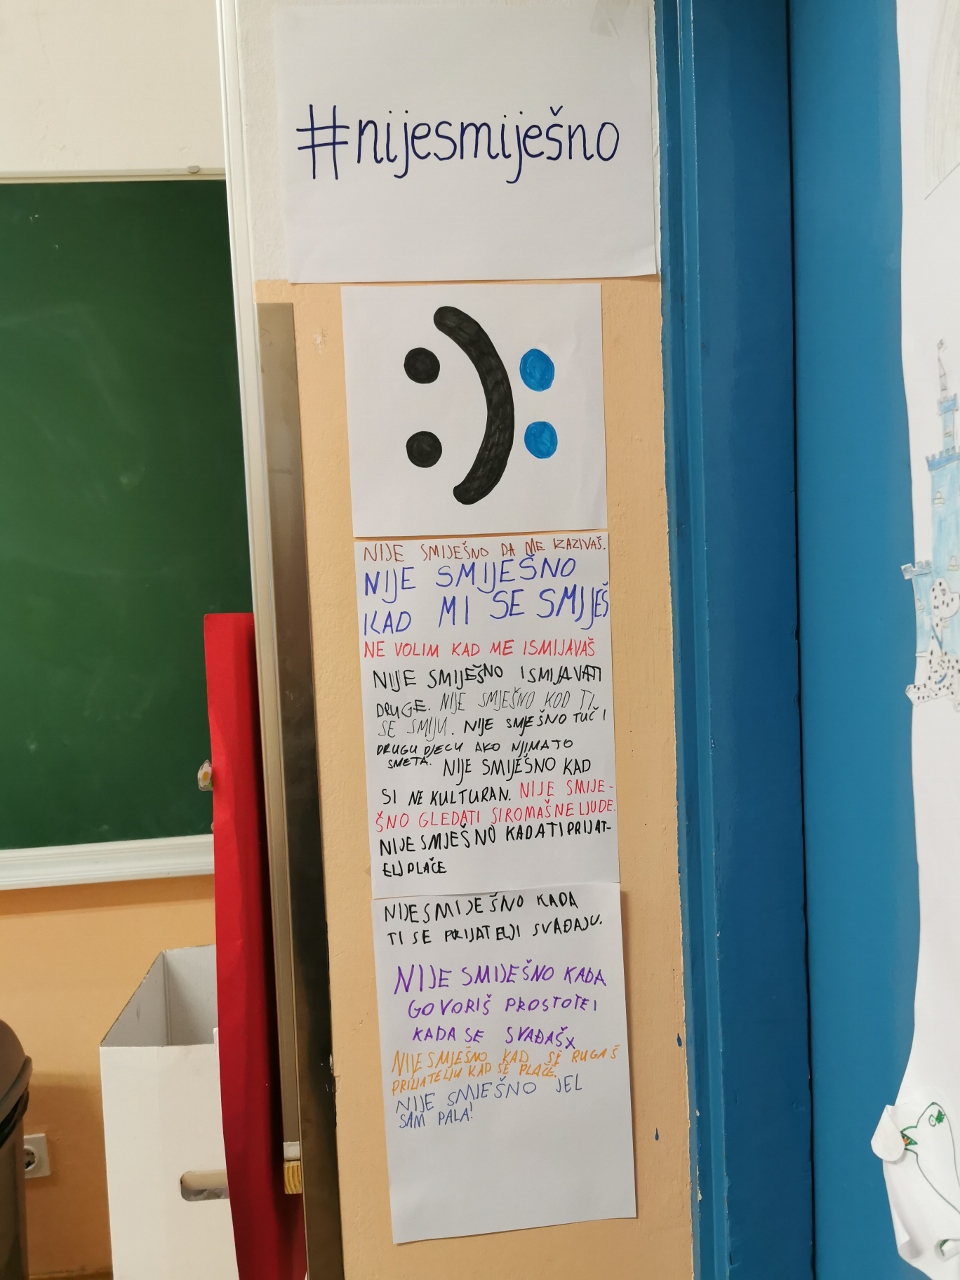 #nijesmiješno
NIJE SMIJEŠNO DA ME IZAZIVAŠ.
NIJE SMIJEŠNO
KAD MI SE SMIJEŠ
NE VOLIM KAD ME ISMIJAVAŠ
NIJE SMIJEŠNO ISMIJAVATI
DRUGE. NIJE SMJEŠNO KOD TI
SE SMIJU. NIJE SMJEŠNO TUČI
DRUGU DJECU AKO NJIMA TO
SMETA. NIJE SMIJEŠNO KAD
SI NE KULTURAN. NIJE SMIJE-
ŠNO GLEDATI SIROMAŠNE LJUDE.
NIJE SMJEŠNO KADA TI PRIJAT-
ELJ PLAČE
NIJE SMIJEŠNO KADA
TI SE PRIJATELJI SVAĐAJU.
NIJE SMIJEŠNO KADA
GOVORIŠ PROSTOTE I
KADA SE SVAĐAŠ
NIJE SMJEŠNO KAD SE RUGAŠ
PRIJATELJU KAD SE PLAČE.
NIJE SMJEŠNO JEL
SAM PALA!